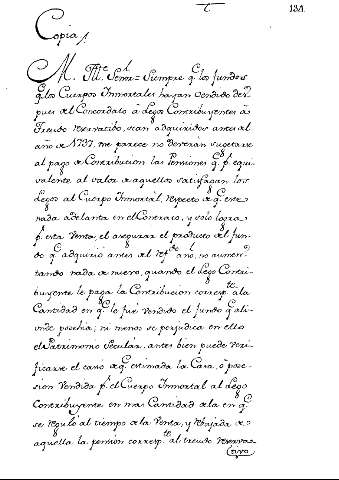 131.
Copia
M. Ill.e Señor = Siempre q.e los fundos
q.e los Cuerpos Inmortales hayan vendido des-
pues del Concordato à Legos Contribuyentes à
Treudo reservatibo, sean adquiridos antes del
año de 1737. me parece no deverán sugetarse
al pago de Contribucion las Pensiones q.e p.r equi-
valente al valor de aquellos satisfagan los
Legos al Cuerpo Inmortál, respecto de q.e este
nada adelanta en el Contrato, y solo logra
p.r esta Venta, el asegurar el producto del fun-
do q.e adquirio antes del ref.do año, no aumen-
tando nada de nuevo, quando el Lego Contri-
buyente le paga la Contribucion corresp.te à la
Cantidad en q.e le fué vendido el fundo q.e ali-
unde posehia; ni menos se perjudica en ello
el Patrimonio Secular, antes bien puede veri-
ficarse el caso de q.e estimada la Casa, ó pose-
sion vendida p.r el Cuerpo Inmortal al Lego
Contribuyente en mas Cantidad de la en q.e
se reguló al tiempo de la Venta, y rebajada de
aquella la pensión corresp.te al treudo reserva-
tivo